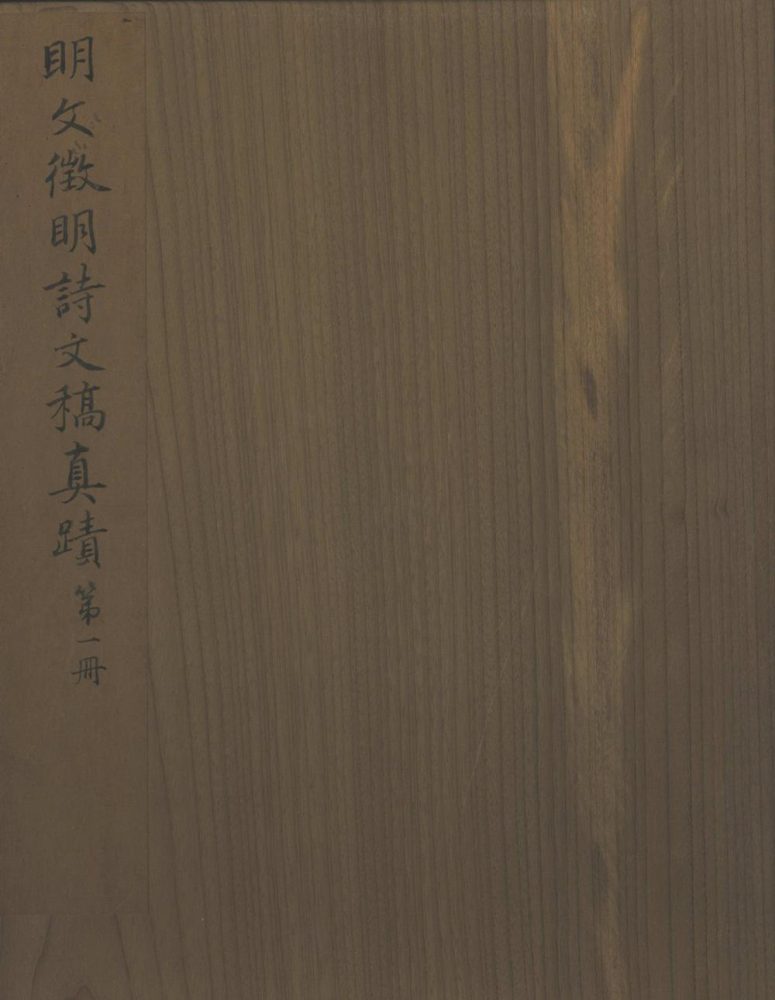 明文徵明詩文稿真蹟 第一冊